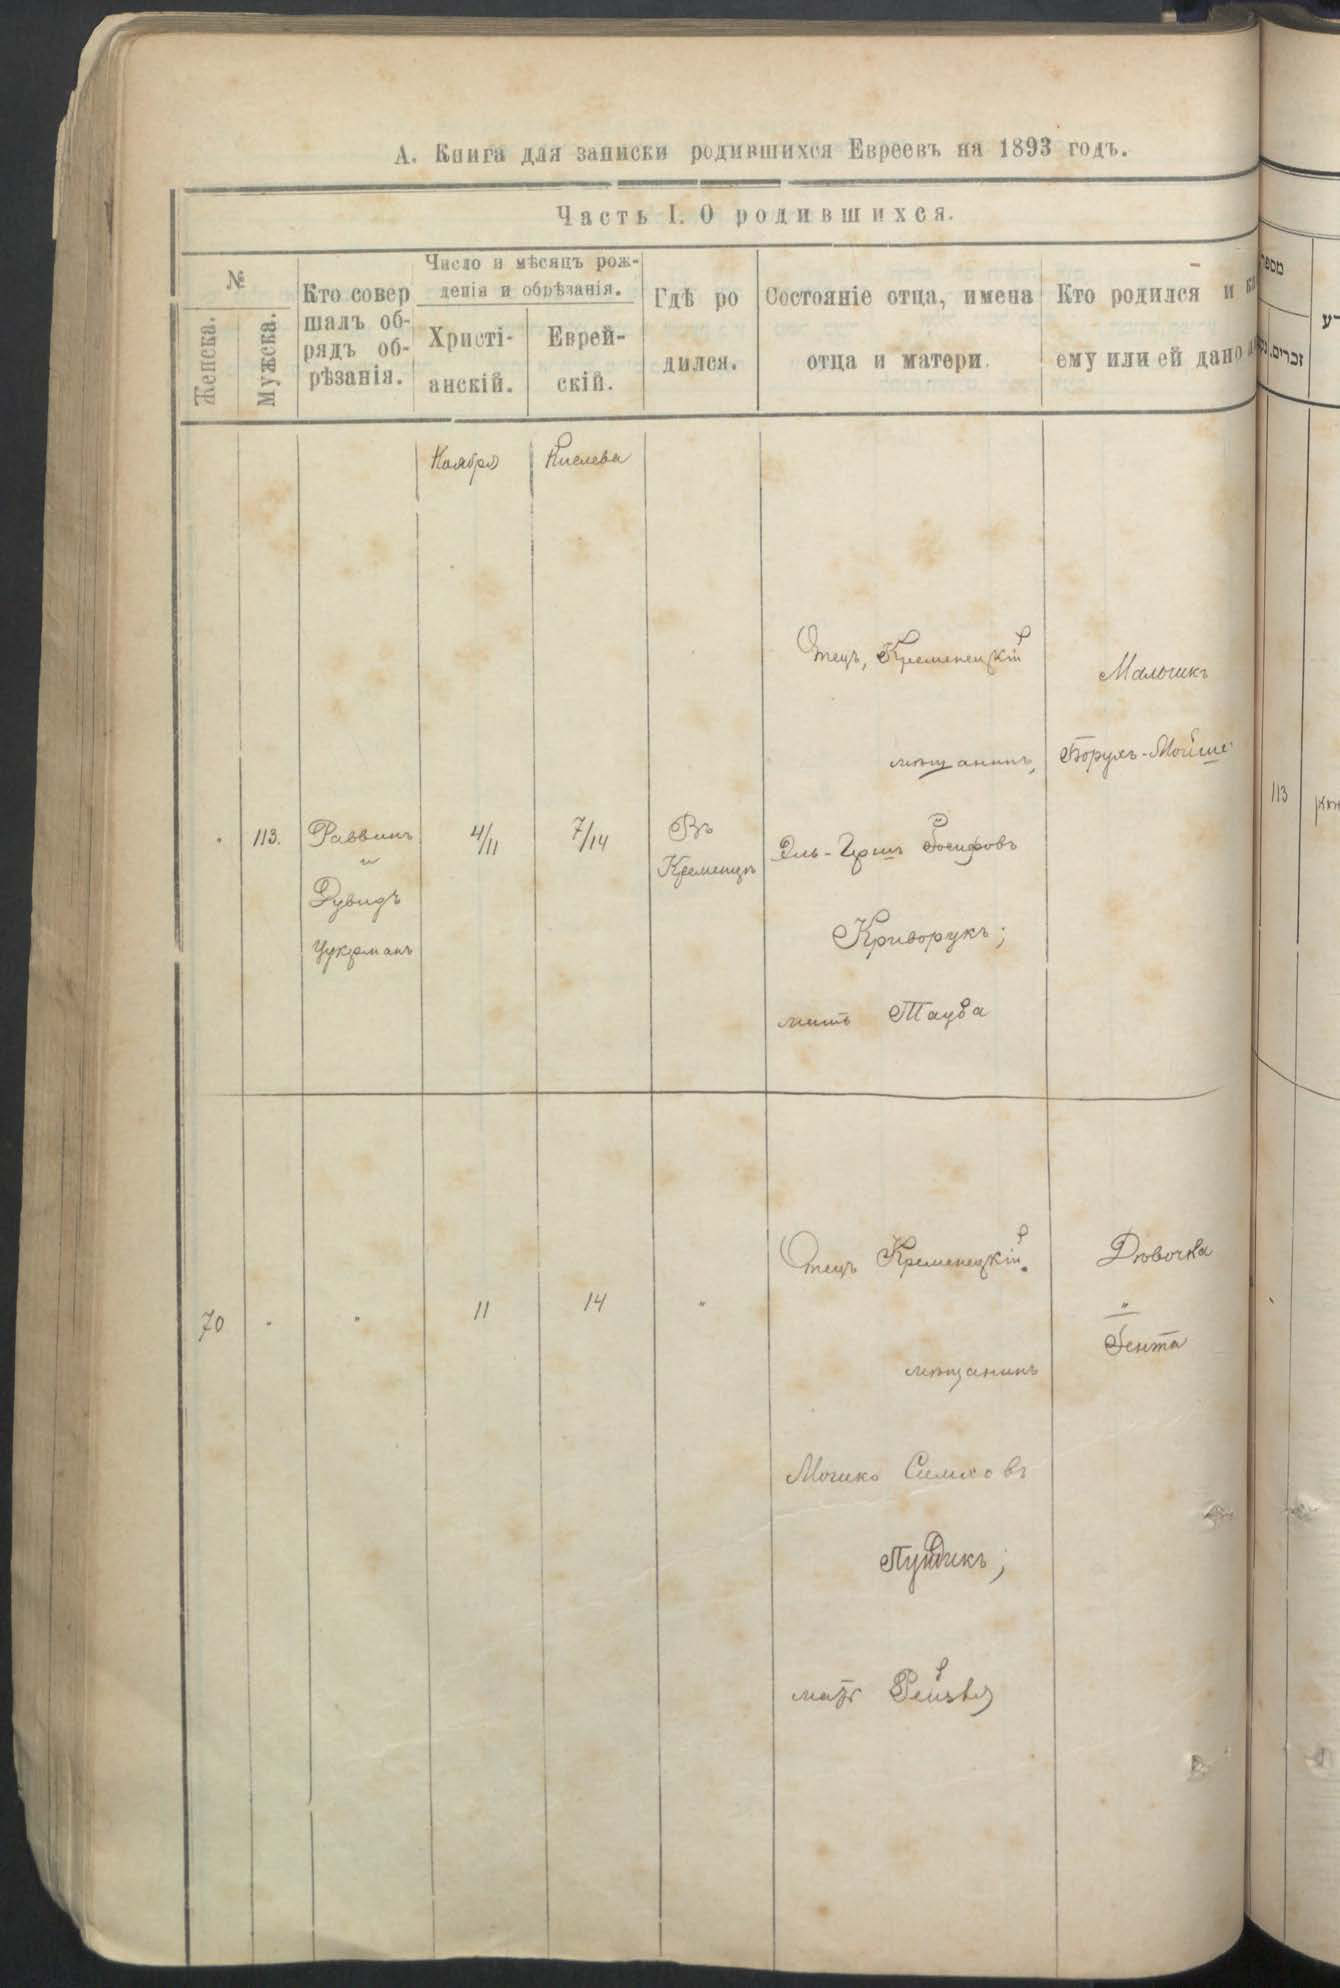 А. Книга для записки родившихся Евреевъ на 1893 годъ.
Часть I. О родившихся.
№
Женска.
Мужска.
Кто совер
шалъ об-
рядъ об-
рѣзанія.
Число и мѣсяцъ рож-
денія и обрѣзанія.
Христі-
анскій.
Еврей-
скій.
Гдѣ ро
дился.
Состояніе отца, имена
отца и матери.
Кто родился и
ему или ей дано
Ноября
Кислева
113.
Раввинъ
и
Дувидъ
Цукерманъ
4/11
7/14
Въ
Кременцѣ
Отецъ, Кременецкій
мѣщанинъ,
Эль-Гершъ Іосифовъ
Криворукъ;
мать Тауба
Мальчикъ
Борухъ-Мойше
70
"
"
11
14
"
Отецъ Кременецкій
мѣщанинъ
мать Рейзля
Дѣвочка
"
Ента
מספר
זכרים.
113